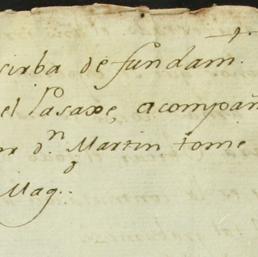 sirba de fundam.
el Pasaxe, acompañ
or d.n Martin tome
Mag.